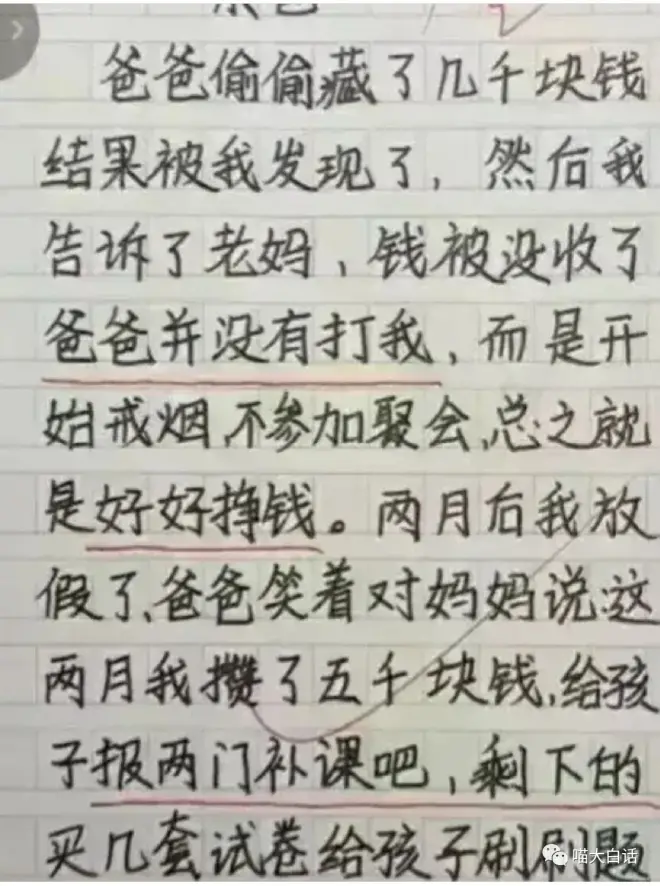 爸爸偷偷藏了几千块钱
结果被我发现了，然后我
告诉了老妈，钱被没收了
爸爸并没有打我，而是开
始戒烟，不参加聚会，总之就
是好好挣钱。两月后我放
假了，爸爸笑着对妈妈说：这
两月我攒了五千块钱，给孩
子报两门补课吧，剩下的
买几套试卷给孩子刷刷题
喵大白话